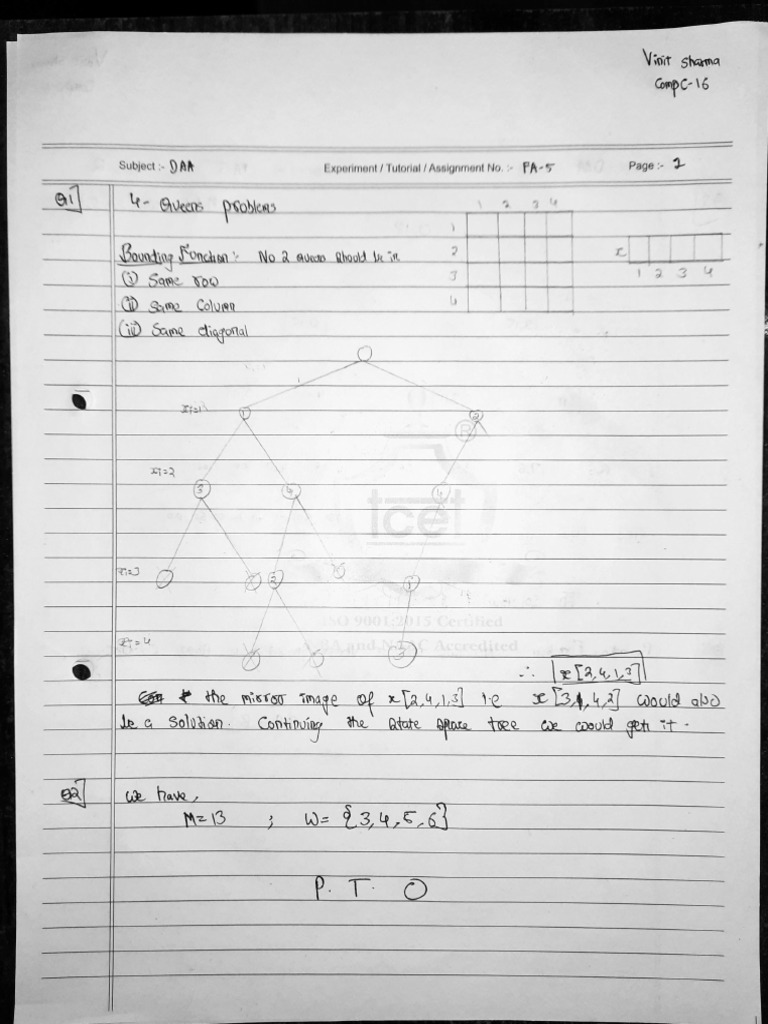 Vinit Sharma
Comp C-16
Subject :- DAA Experiment / Tutorial / Assignment No. :- PA-5 Page :- 1
Q1] 4- Queens problems
1 2 3 4
1
2
3
4
x
1 2 3 4
Bounding Function :- No 2 queens should be in
(i) Same row
(ii) Same Column
(iii) Same diagonal
1 2
R
xi=2
3 4 4
tcet
xi=3
2 1
ISO 9001:2015 Certified
NBA and NAAC Accredited
xi=4
3
∴ x[2,4,1,3]
the mirror image of x[2,4,1,3] i.e x[3,1,4,2] would also
be a solution. Continuing the state space tree we would get it.
Q2] We have,
M=13 ; W= {3,4,5,6}
P. T. O